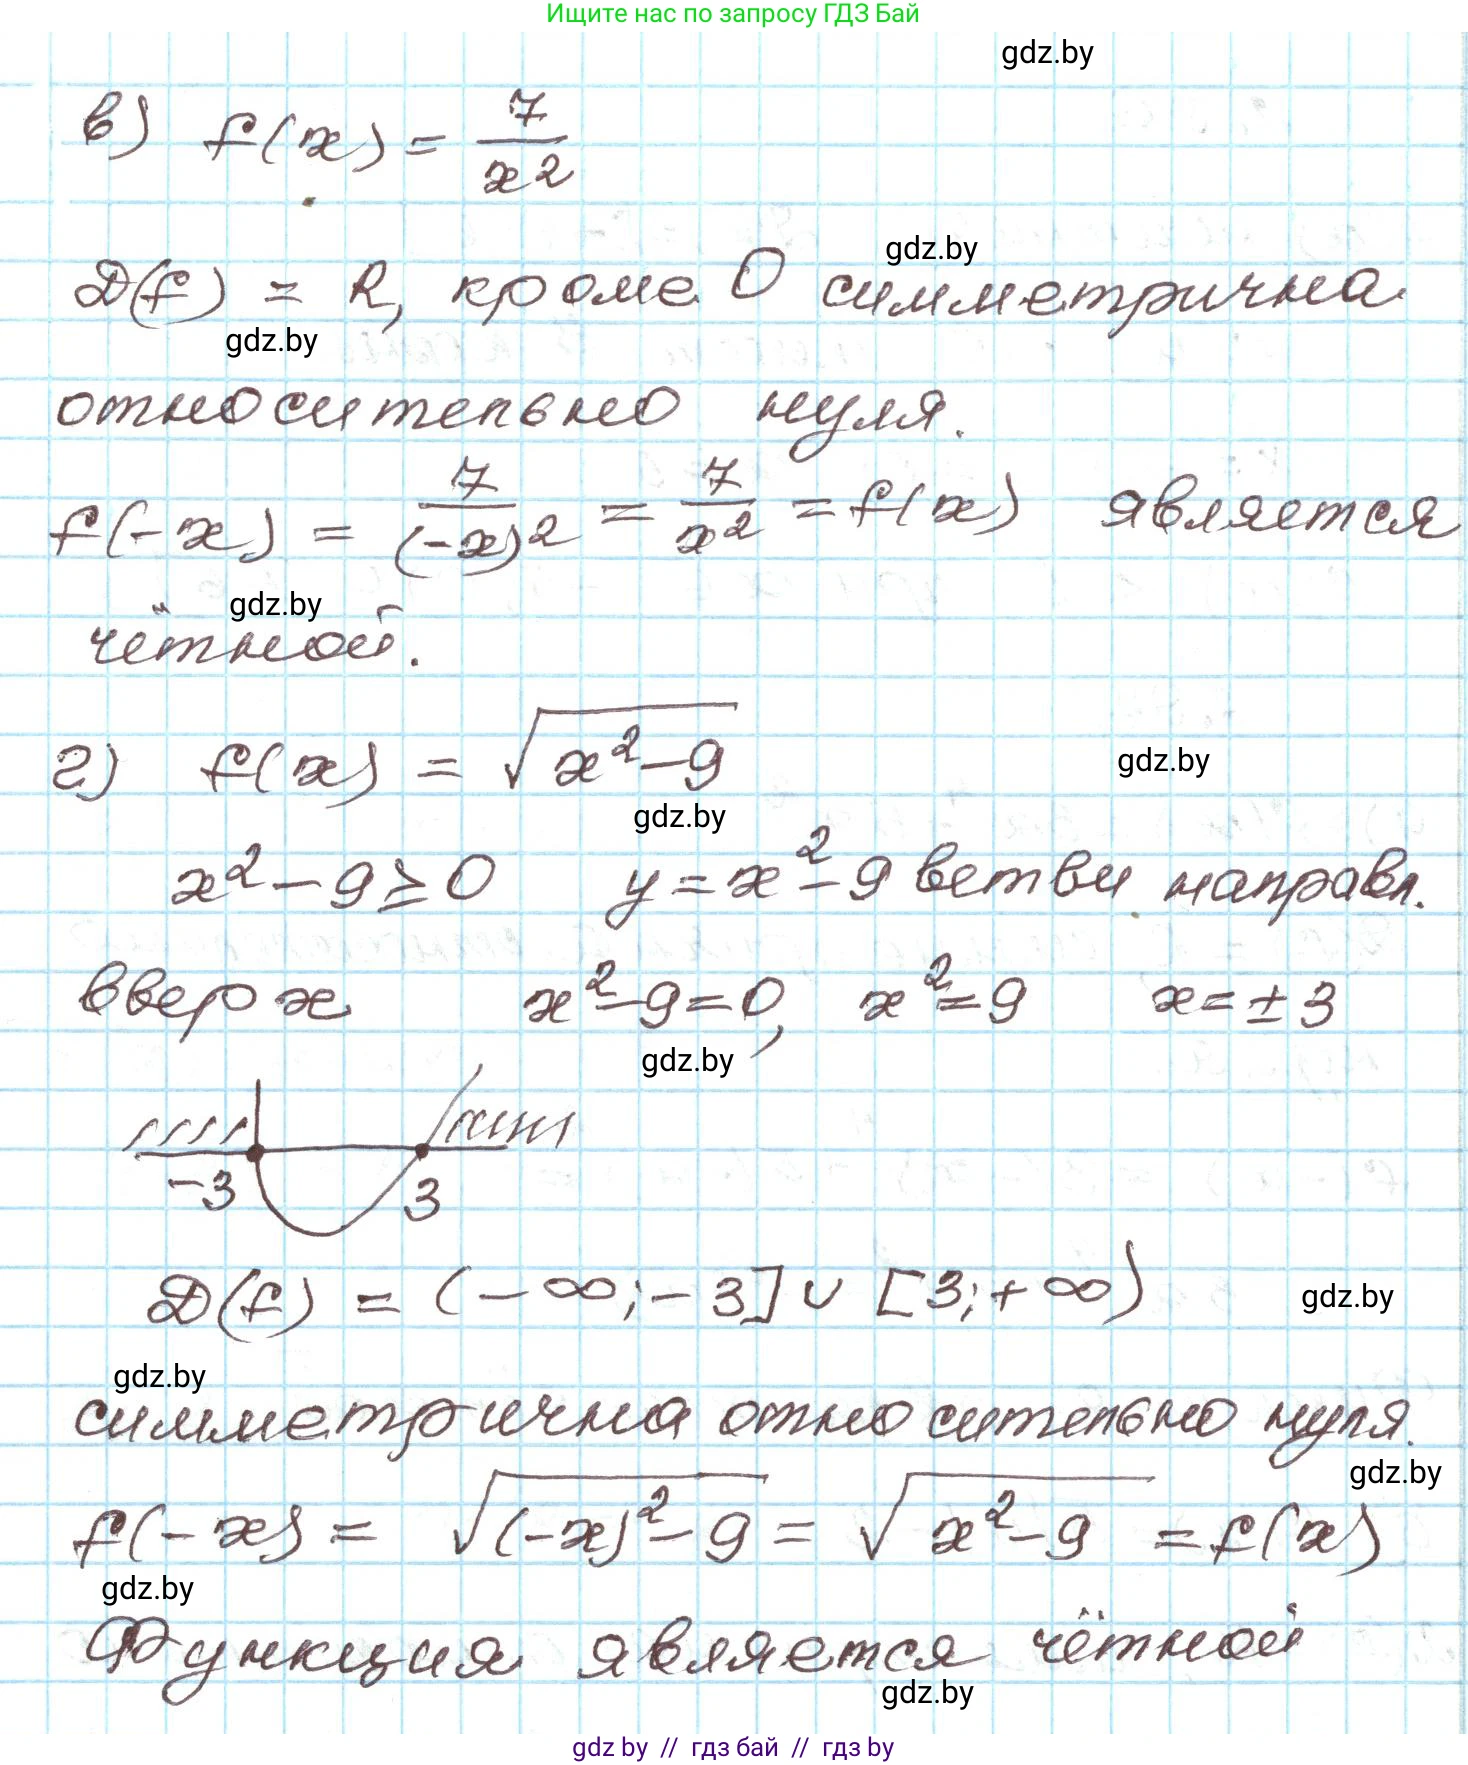 Ищите нас по запросу ГДЗ Бай
gdz.by
в) f(x) = 7/x²
gdz.by
D(f) = R, кроме 0 симметрична
gdz.by
относительно нуля.
f(-x) = 7/(-x)² = 7/x² = f(x) является
gdz.by
чётной.
г) f(x) = √(x²-9)
gdz.by
gdz.by
x² - 9 ≥ 0 y = x² - 9 ветви направл.
вверх x² - 9 = 0, x² = 9 x = ± 3
gdz.by
-3 3
D(f) = (-∞; -3] ∪ [3; +∞)
gdz.by
gdz.by
симметрична относительно нуля.
gdz.by
f(-x) = √((-x)² - 9) = √(x² - 9) = f(x)
gdz.by
Функция является чётной
gdz.by
gdz by // гдз бай // гдз by